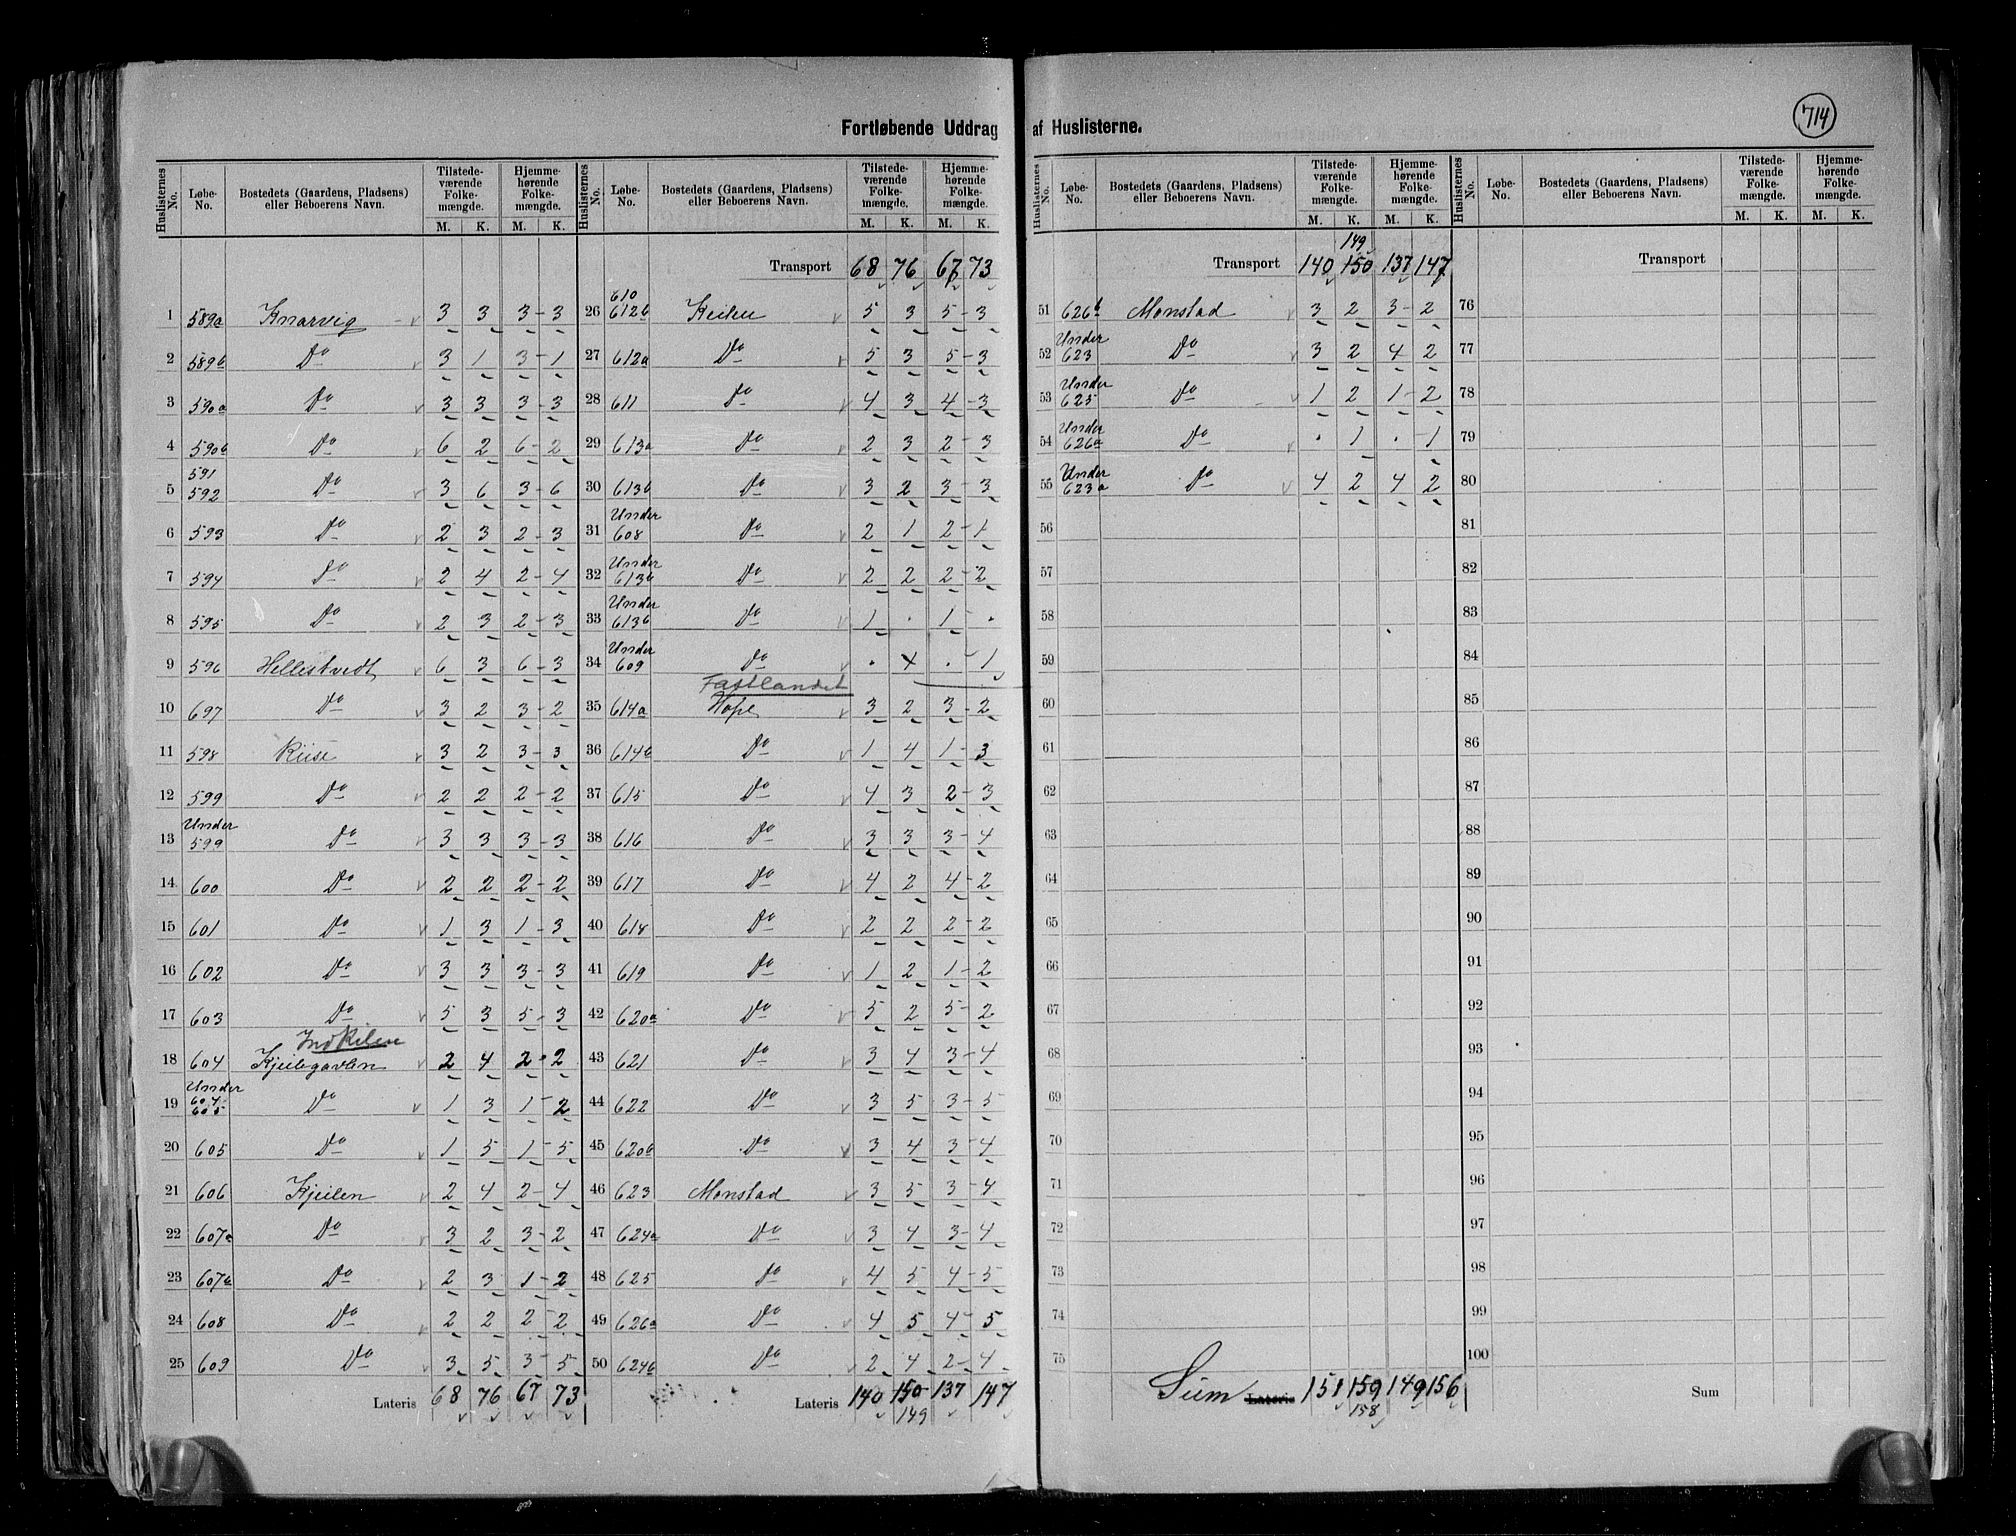 714
Fortløbende Uddrag af Huslisterne.
Huslisternes No. Løbe-No. Bostedets (Gaardens, Pladsens) eller Beboerens Navn. Tilstede-værende Folke-mængde. M. K. Hjemme-hørende Folke-mængde. M. K.
1 589a Knarvig 3 3 3-3
2 589b Do 3 1 3-1
3 590a Do 3 3 3-3
4 590b Do 6 2 6-2
5 591 592 Do 3 6 3-6
6 593 Do 2 3 2-3
7 594 Do 2 4 2-4
8 595 Do 2 3 2-3
9 596 Hellestvedt 6 3 6-3
10 697 Do 3 2 3-2
11 598 Riise 3 2 3-3
12 599 Do 2 2 2-2
13 Under 599 Do 3 3 3-3
14 600 Do 2 2 2-2
15 601 Do 1 3 1-3
16 602 Do 3 3 3-3
17 603 Do 5 3 5-3
Indkilen
18 604 Kjeilegavlen 2 4 2-2
19 Under 604 605 Do 1 3 1-2
20 605 Do 1 5 1-5
21 606 Kjeilen 2 4 2-4
22 607a Do 3 2 3-2
23 607b Do 2 3 1-2
24 608 Do 2 2 2-2
25 609 Do 3 5 3-5
Lateris 68 76 67 73
Huslisternes No. Løbe-No. Bostedets (Gaardens, Pladsens) eller Beboerens Navn. Tilstede-værende Folke-mængde. M. K. Hjemme-hørende Folke-mængde. M. K.
Transport 68 76 67 73
26 610 612b Keilen 5 3 5-3
27 612a Do 5 3 5-3
28 611 Do 4 3 4-3
29 613a Do 2 3 2-3
30 613b Do 3 2 3-3
31 Under 608 Do 2 1 2-1
32 Under 613b Do 2 2 2-2
33 Under 613b Do 1 . 1-.
34 Under 609 Do . . -1
Fastlandet
35 614a Hope 3 2 3-2
36 614b Do 1 4 1-3
37 615 Do 4 3 2-3
38 616 Do 3 3 3-4
39 617 Do 4 2 4-2
40 618 Do 2 2 2-2
41 619 Do 1 2 1-2
42 620a Do 5 2 5-2
43 621 Do 3 4 3-4
44 622 Do 3 5 3-5
45 620b Do 3 4 3-4
46 623 Monstad 3 5 3-4
47 624a Do 3 4 3-4
48 625 Do 4 5 4-5
49 626a Do 4 5 4-5
50 624b Do 2 4 2-4
Lateris 140 150 137 147
149
Huslisternes No. Løbe-No. Bostedets (Gaardens, Pladsens) eller Beboerens Navn. Tilstede-værende Folke-mængde. M. K. Hjemme-hørende Folke-mængde. M. K.
149
Transport 140 150 137 147
51 626b Monstad 3 2 3-2
52 Under 623 Do 3 2 4 2
53 Under 625 Do 1 2 1-2
54 Under 626a Do . 1 . -1
55 Under 623a Do 4 2 4 2
56
57
58
59
60
61
62
63
64
65
66
67
68
69
70
71
72
73
74
75
Sum Lateris 151 159 149 156
158
Huslisternes No. Løbe-No. Bostedets (Gaardens, Pladsens) eller Beboerens Navn. Tilstede-værende Folke-mængde. M. K. Hjemme-hørende Folke-mængde. M. K.
Transport
76
77
78
79
80
81
82
83
84
85
86
87
88
89
90
91
92
93
94
95
96
97
98
99
100
Sum